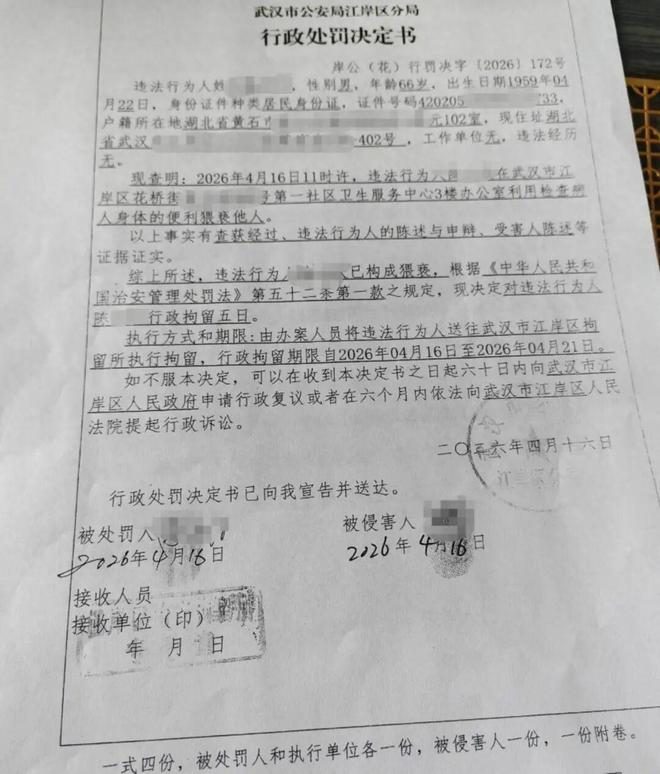 武汉市公安局江岸区分局
行政处罚决定书
岸公(花)行罚决字〔2026〕172号
违法行为人姓 性别男，年龄66岁，出生日期1959年04
月22日，身份证件种类居民身份证，证件号码420205 733，
户籍所在地湖北省黄石市 元102室，现住址湖北
省武汉 402号，工作单位无，违法经历
无。
现查明：2026年4月16日11时许，违法行为人 在武汉市江
岸区花桥街 号第一社区卫生服务中心3楼办公室利用检查病
人身体的便利猥亵他人。
以上事实有查获经过、违法行为人的陈述与申辩、受害人陈述等
证据证实。
综上所述，违法行为人 已构成猥亵，根据《中华人民共和
国治安管理处罚法》第五十二条第一款之规定，现决定对违法行为人
陈 行政拘留五日。
执行方式和期限：由办案人员将违法行为人送往武汉市江岸区拘
留所执行拘留，行政拘留期限自2026年04月16日至2026年04月21日。
如不服本决定，可以在收到本决定书之日起六十日内向武汉市江
岸区人民政府申请行政复议或者在六个月内依法向武汉市江岸区人民
法院提起行政诉讼。
二〇二六年四月十六日
行政处罚决定书已向我宣告并送达。
被处罚人 被侵害人
2026年4月16日 2026年4月16日
接收人员
接收单位（印）
年 月 日
一式四份，被处罚人和执行单位各一份，被侵害人一份，一份附卷。